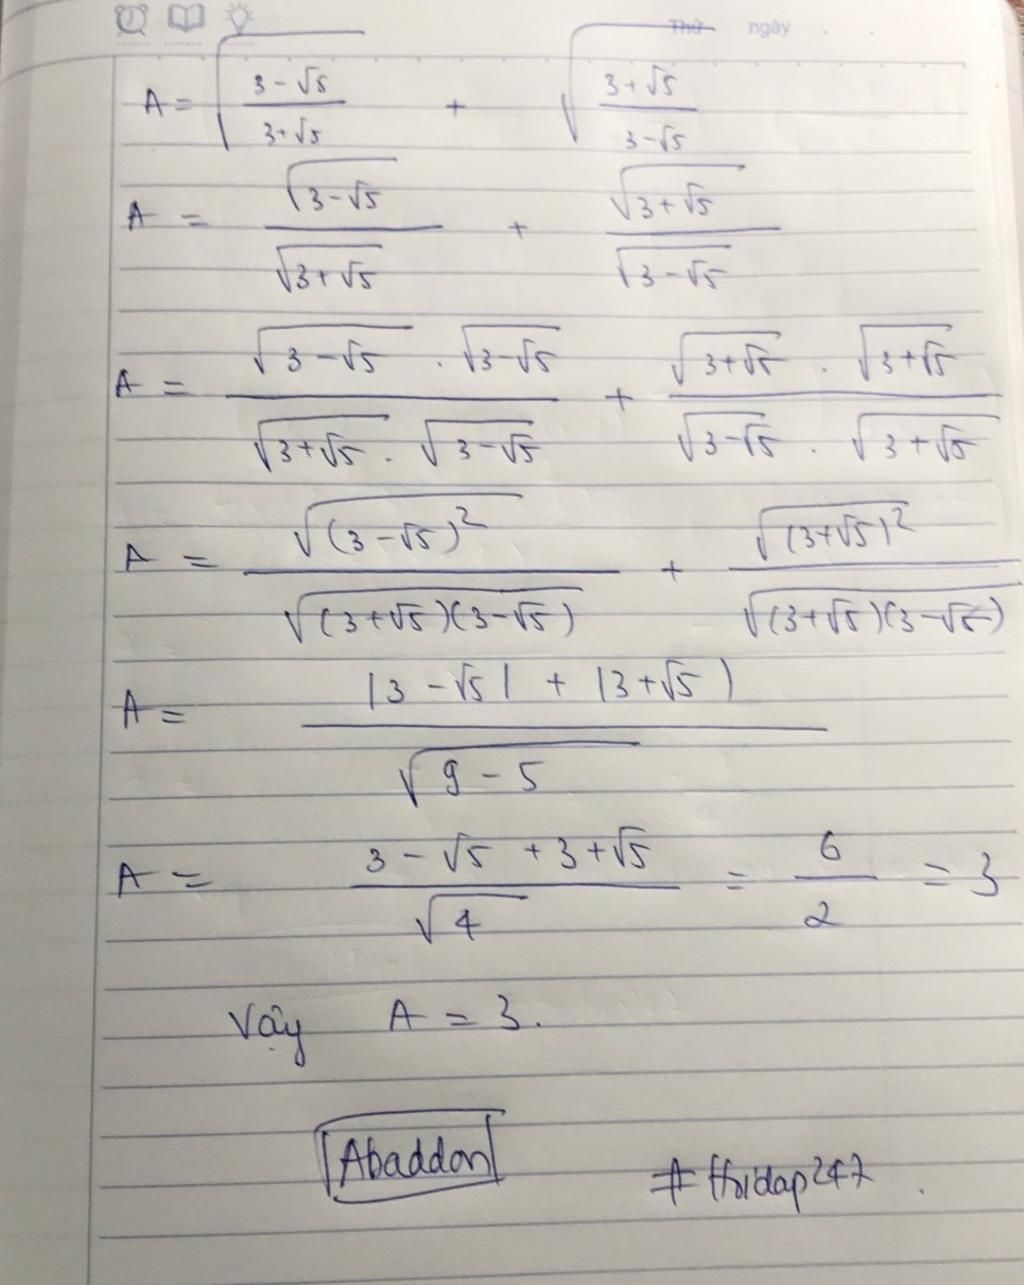 Thứ ngày . .
A = √((3 - √5)/(3 + √5)) + √((3 + √5)/(3 - √5))
A = √(3 - √5)/√(3 + √5) + √(3 + √5)/√(3 - √5)
A = (√(3 - √5) . √(3 - √5))/(√(3 + √5) . √(3 - √5)) + (√(3 + √5) . √(3 + √5))/(√(3 - √5) . √(3 + √5))
A = √((3 - √5)²)/√((3 + √5)(3 - √5)) + √((3 + √5)²)/√((3 + √5)(3 - √5))
A = (|3 - √5| + |3 + √5|)/√(9 - 5)
A = (3 - √5 + 3 + √5)/√4 = 6/2 = 3
Vậy A = 3.
Abaddon
# Hoidap247.